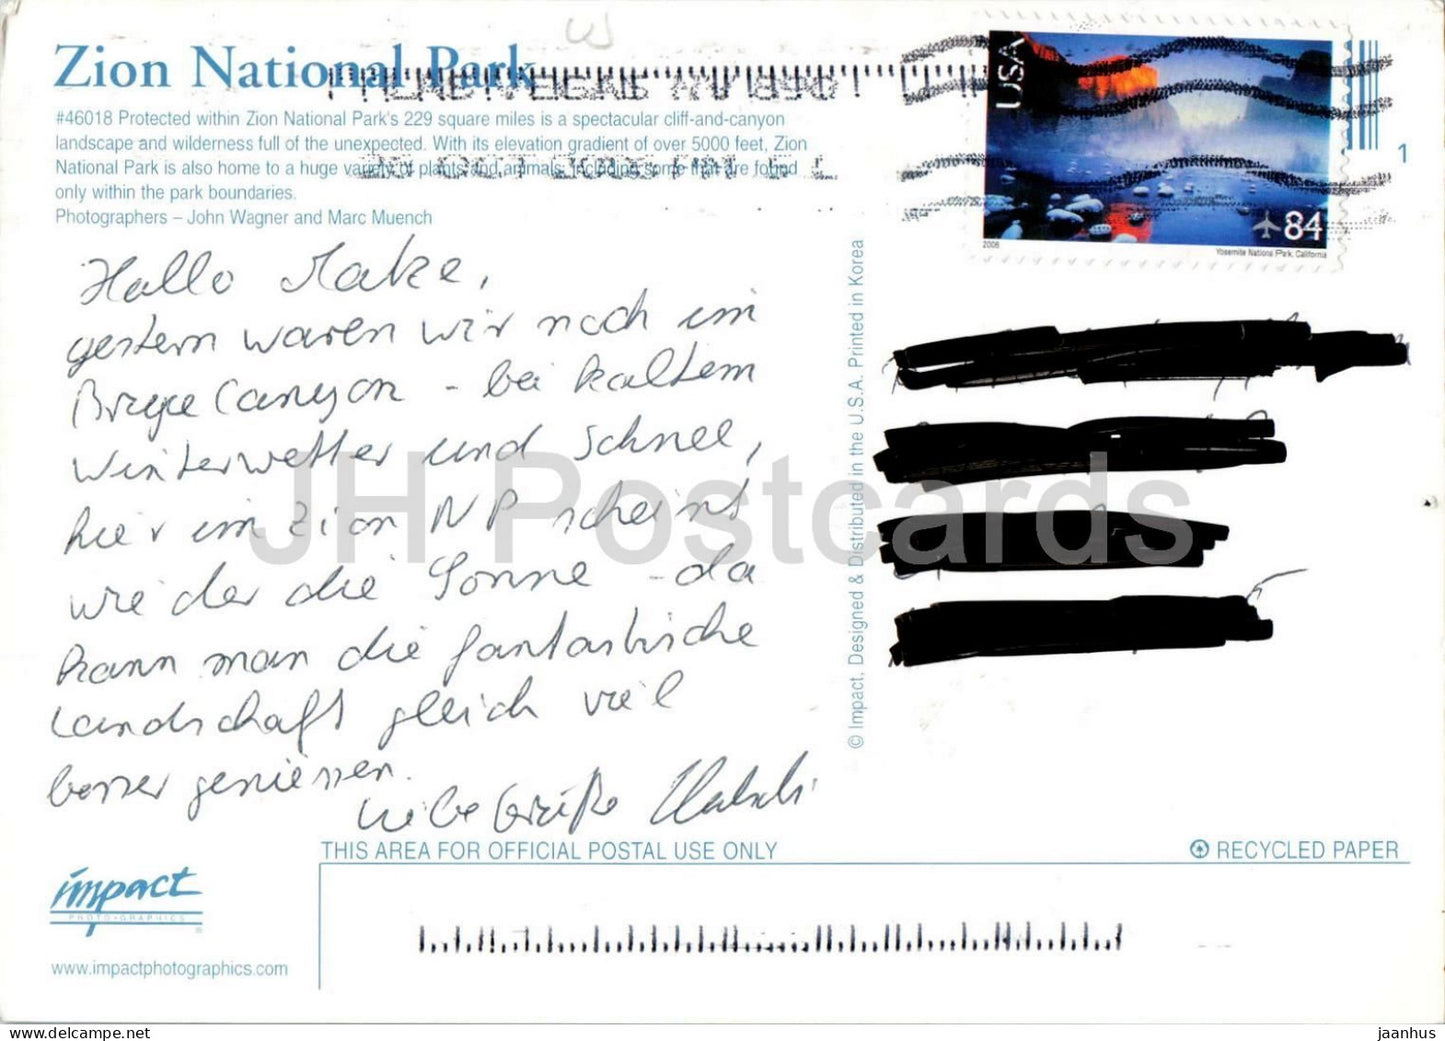 Zion National Park
#46018 Protected within Zion National Park's 229 square miles is a spectacular cliff-and-canyon
landscape and wilderness full of the unexpected. With its elevation gradient of over 5000 feet, Zion
National Park is also home to a huge variety of plants and animals, including some that are found
only within the park boundaries.
Photographers – John Wagner and Marc Muench
USA
84
2006
Yosemite National Park, California
1
Hallo
gestern waren wir noch im
Bryce Canyon - bei kaltem
Winterwetter und Schnee,
hier im Zion NP scheint
wieder die Sonne - da
kann man die fantastische
Landschaft gleich viel
besser geniessen.
Liebe Grüße
© Impact, Designed & Distributed in the U.S.A. Printed in Korea
JH Postcards
THIS AREA FOR OFFICIAL POSTAL USE ONLY
RECYCLED PAPER
impact
PHOTOGRAPHICS
www.impactphotographics.com
jaanhus